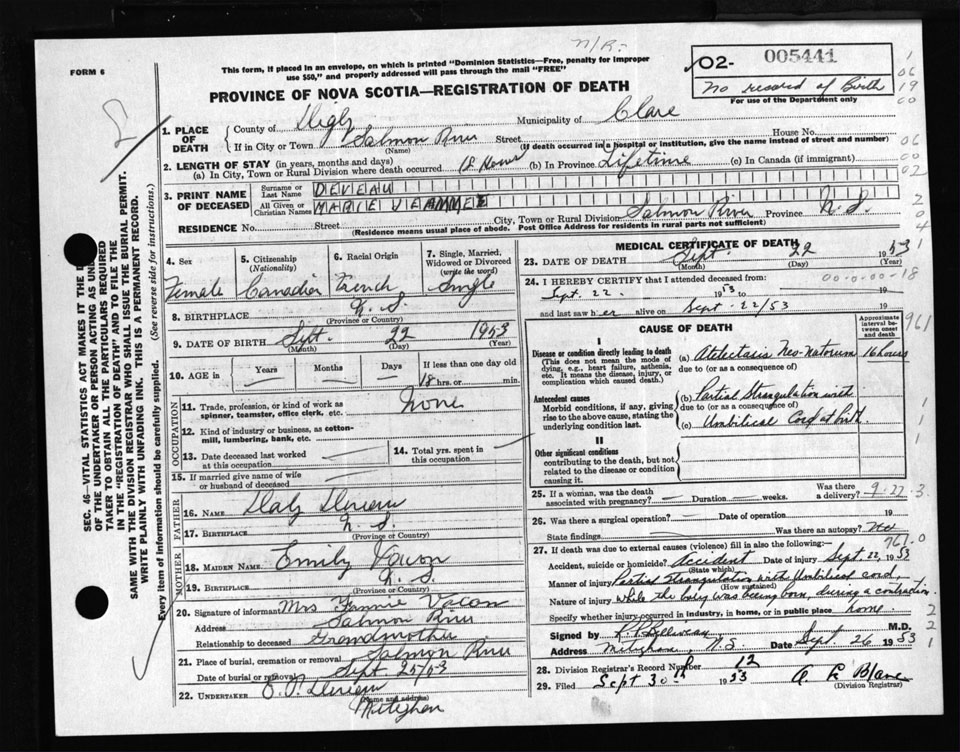 n/R-
FORM 6
This form, if placed in an envelope, on which is printed "Dominion Statistics—Free, penalty for improper
use $50," and properly addressed will pass through the mail "FREE"
02- 005441
No record of Birth
For use of the Department only
PROVINCE OF NOVA SCOTIA—REGISTRATION OF DEATH
1. PLACE OF DEATH
County of Digby Municipality of Clare
If in City or Town Salmon River Street House No.
(Name) (If death occurred in a hospital or institution, give the name instead of street and number)
2. LENGTH OF STAY (in years, months and days)
(a) In City, Town or Rural Division where death occurred 18 Hours (b) In Province Lifetime (c) In Canada (if immigrant)
3. PRINT NAME OF DECEASED
Surname or Last Name DEVEAU
All Given or Christian Names MARIE JEANNE
RESIDENCE No. Street City, Town or Rural Division Salmon River Province N.S.
(Residence means usual place of abode. Post Office Address for residents in rural parts not sufficient)
4. Sex Female
5. Citizenship (Nationality) Canadian
6. Racial Origin French
7. Single, Married, Widowed or Divorced (write the word) Single
8. BIRTHPLACE N.S.
(Province or Country)
9. DATE OF BIRTH Sept. 22 1953
(Month) (Day) (Year)
10. AGE in Years Months Days If less than one day old
18 hrs. or min.
OCCUPATION
11. Trade, profession, or kind of work as spinner, teamster, office clerk, etc. None
12. Kind of industry or business, as cotton-mill, lumbering, bank, etc.
13. Date deceased last worked at this occupation
14. Total yrs. spent in this occupation
15. If married give name of wife or husband of deceased
FATHER
16. NAME Deveau
17. BIRTHPLACE N.S.
(Province or Country)
MOTHER
18. MAIDEN NAME Emily Vacon
19. BIRTHPLACE N.S.
(Province or Country)
20. Signature of informant Mrs Fannie Vacon
Address Salmon River
Relationship to deceased Grandmother
21. Place of burial, cremation or removal Salmon River
Date of burial or removal Sept 25/53
22. UNDERTAKER Deveau
(Name and address)
Meteghan
MEDICAL CERTIFICATE OF DEATH
23. DATE OF DEATH Sept. 22 1953
(Month) (Day) (Year)
24. I HEREBY CERTIFY that I attended deceased from: 00-0-00-18
Sept. 22 1953 to 19
and last saw her alive on Sept. 22/53 19
CAUSE OF DEATH
Approximate interval between onset and death
I
Disease or condition directly leading to death
(This does not mean the mode of dying, e.g., heart failure, asthenia, etc. It means the disease, injury, or complication which caused death.)
(a) Atelectasis Neo-Natorum 16 hours
due to (or as a consequence of)
Antecedent causes
Morbid conditions, if any, giving rise to the above cause, stating the underlying condition last.
(b) Partial Strangulation with
due to (or as a consequence of)
(c) Umbilical Cord at birth.
II
Other significant conditions
contributing to the death, but not related to the disease or condition causing it.
25. If a woman, was the death associated with pregnancy? Duration weeks. Was there a delivery? 9-22-3
26. Was there a surgical operation? Date of operation 19
State findings Was there an autopsy? No
761.0
27. If death was due to external causes (violence) fill in also the following:—
Accident, suicide or homicide? Accident Date of injury Sept. 22, 1953
(State which)
Manner of injury Partial Strangulation with Umbilical cord,
(How sustained)
Nature of injury while the baby was being born, during a contraction
Specify whether injury occurred in industry, in home, or in public place home.
Signed by M.D.
Address Meteghan, N.S. Date Sept. 26 1953
28. Division Registrar's Record Number 12
29. Filed Sept 30th 1953
(Division Registrar)
SEC. 46—VITAL STATISTICS ACT MAKES IT THE
OF THE UNDERTAKER OR PERSON ACTING AS
TAKER TO OBTAIN ALL THE PARTICULARS REQUIRED
IN THE "REGISTRATION OF DEATH" AND TO FILE THE
SAME WITH THE DIVISION REGISTRAR WHO SHALL ISSUE THE BURIAL PERMIT.
WRITE PLAINLY WITH UNFADING INK. THIS IS A PERMANENT RECORD.
Every item of information should be carefully supplied. (See reverse side for instructions.)
1
06
19
00
06
00
02
2
0
4
1
961
1
1
1
2
2
1